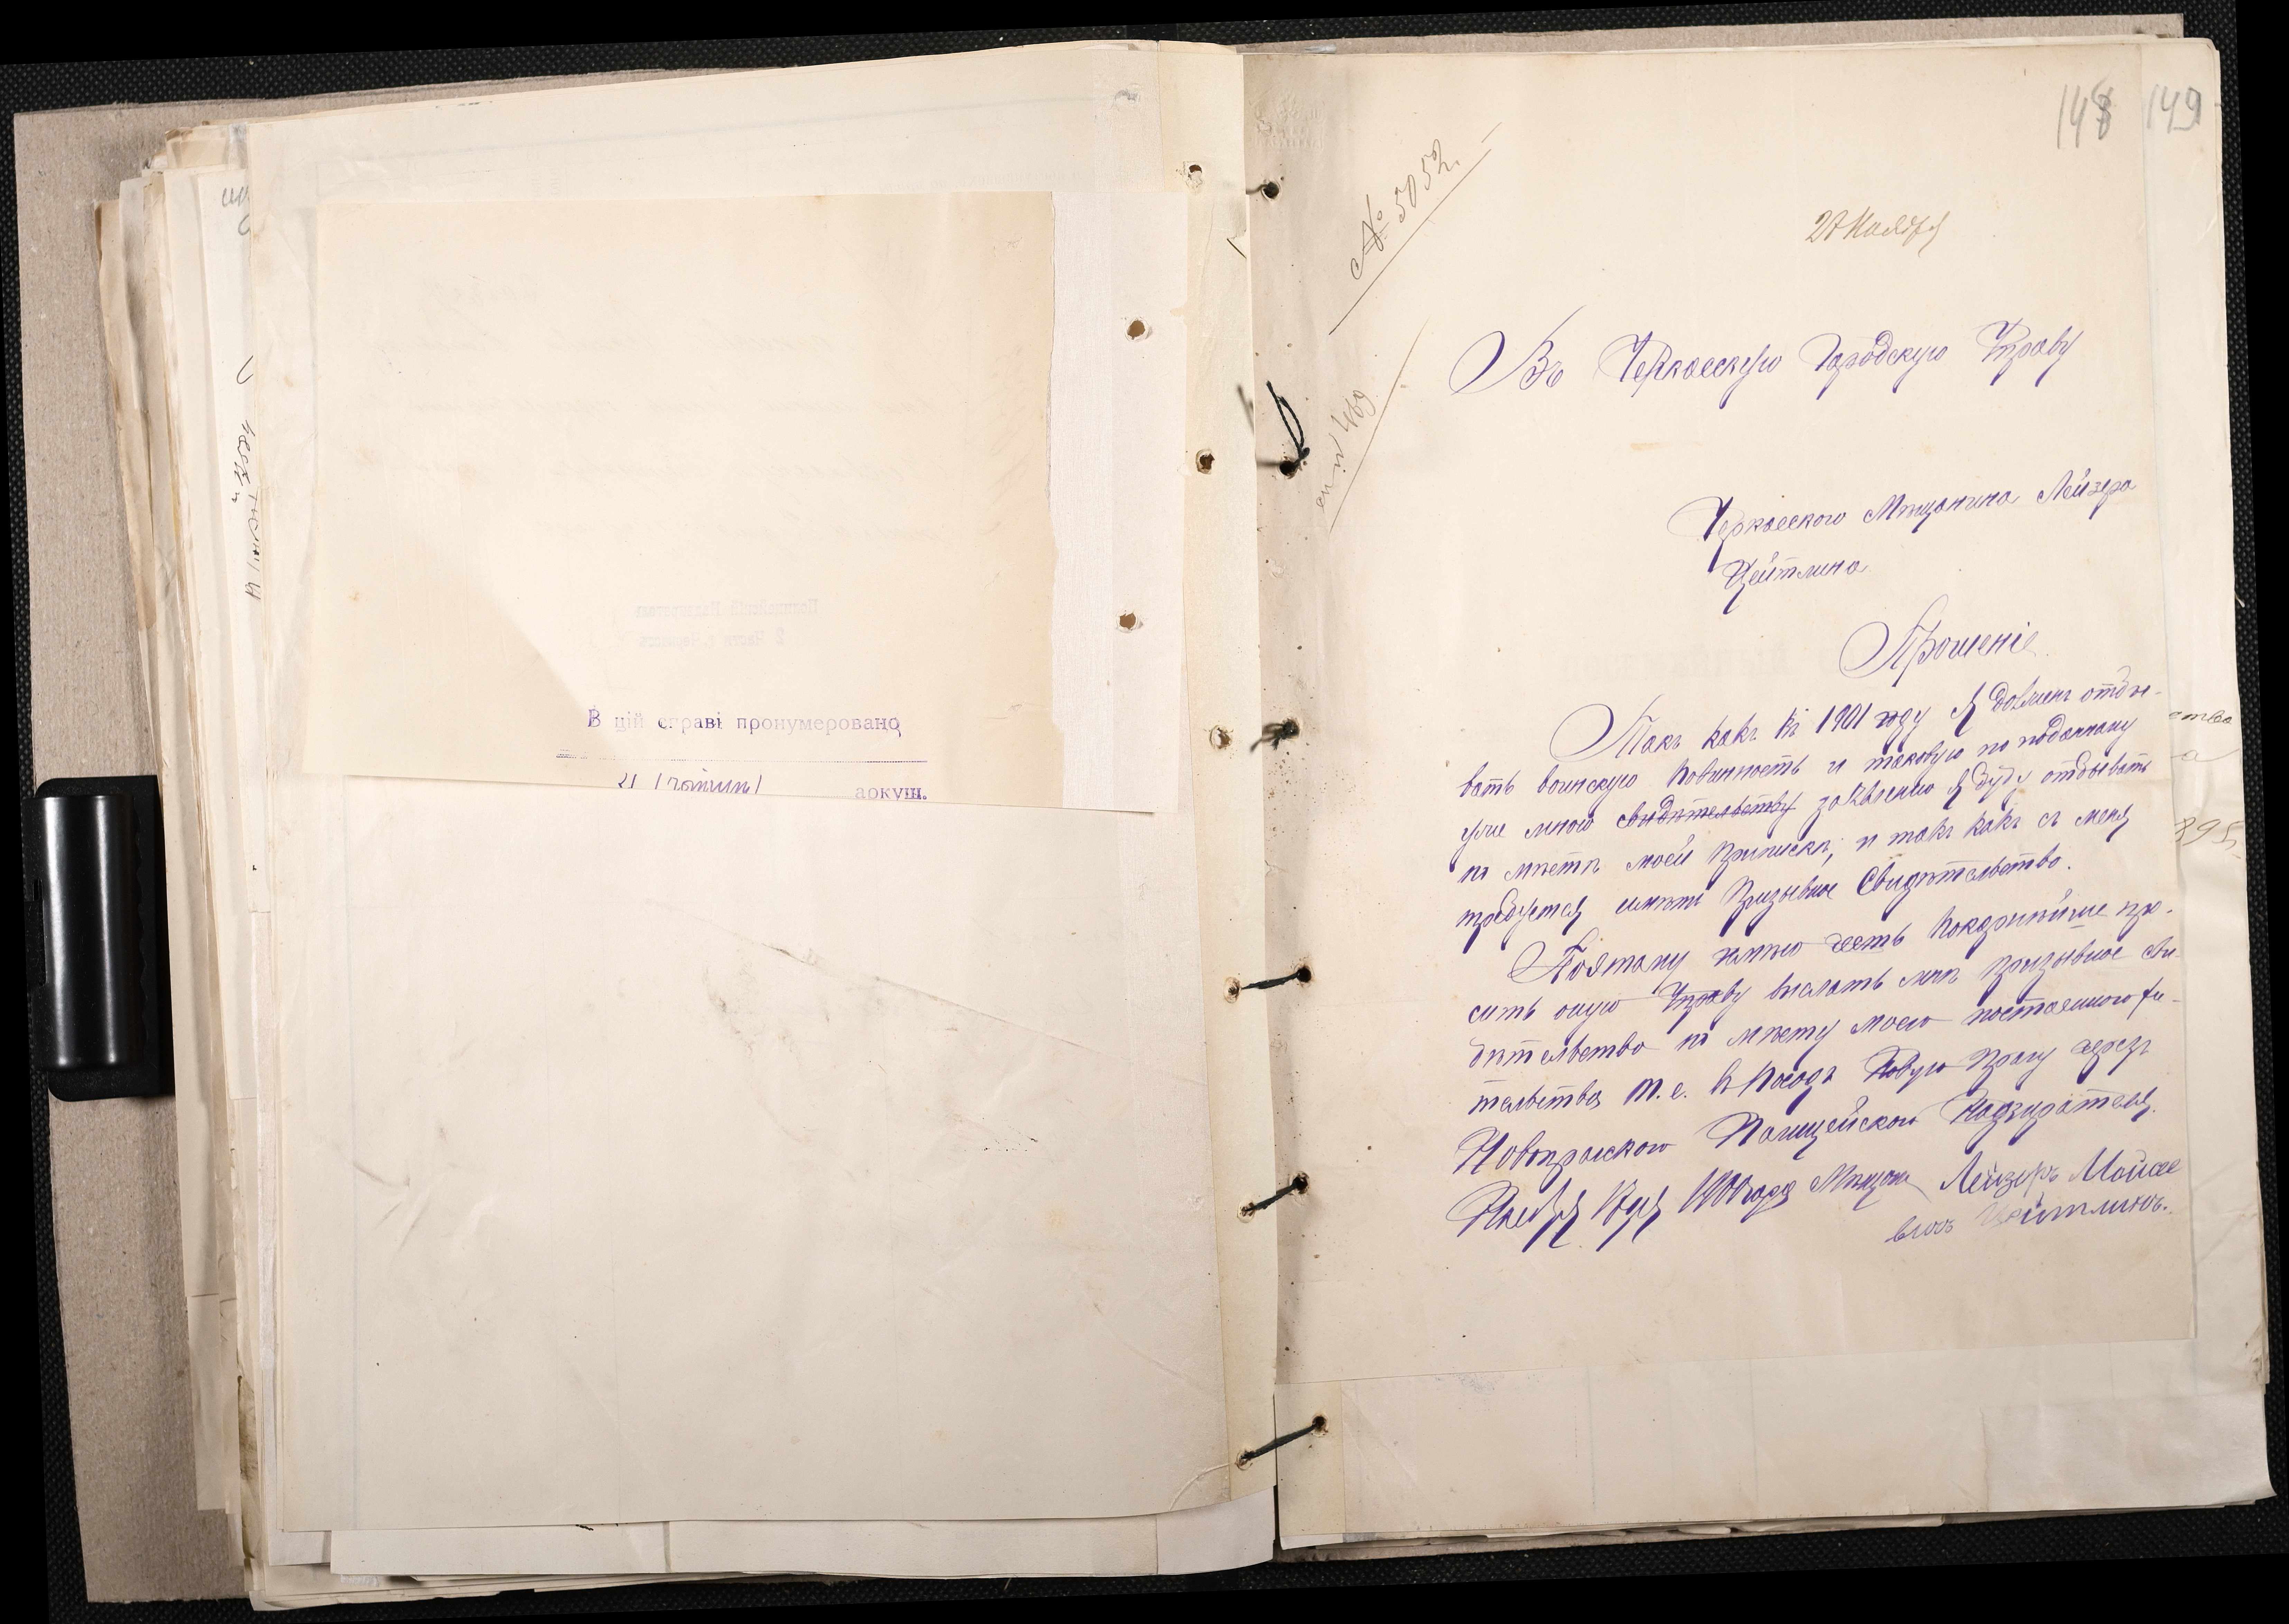 В цій справі пронумеровано
аркуш.
148 149
№ 5052.
27 Ноября
Въ Черкасскую Городскую Управу
Черкасского Мѣщанина Лейзера
Цейтлина
Прошеніе
Такъ какъ въ 1901 году я долженъ отбы-
вать воинскую повинность и таковую по поданному
уже мною свидѣтельству заявленію я буду отбывать
по мѣстѣ моей приписки, и такъ какъ съ меня
требуется имѣть Призывное Свидѣтельство.
Поэтому имѣю честь покорнѣйше про-
сить оную Управу выслать мнѣ призывное сви-
дѣтельство по мѣсту моего постоянного жи-
тельства т. е. въ посадъ Новую Прагу чрезъ
Новопрагского Полицейского Надзирателя.
Ноября дня 1900 года Мѣщан Лейзеръ Мойсее
вичъ Цейтлинъ.